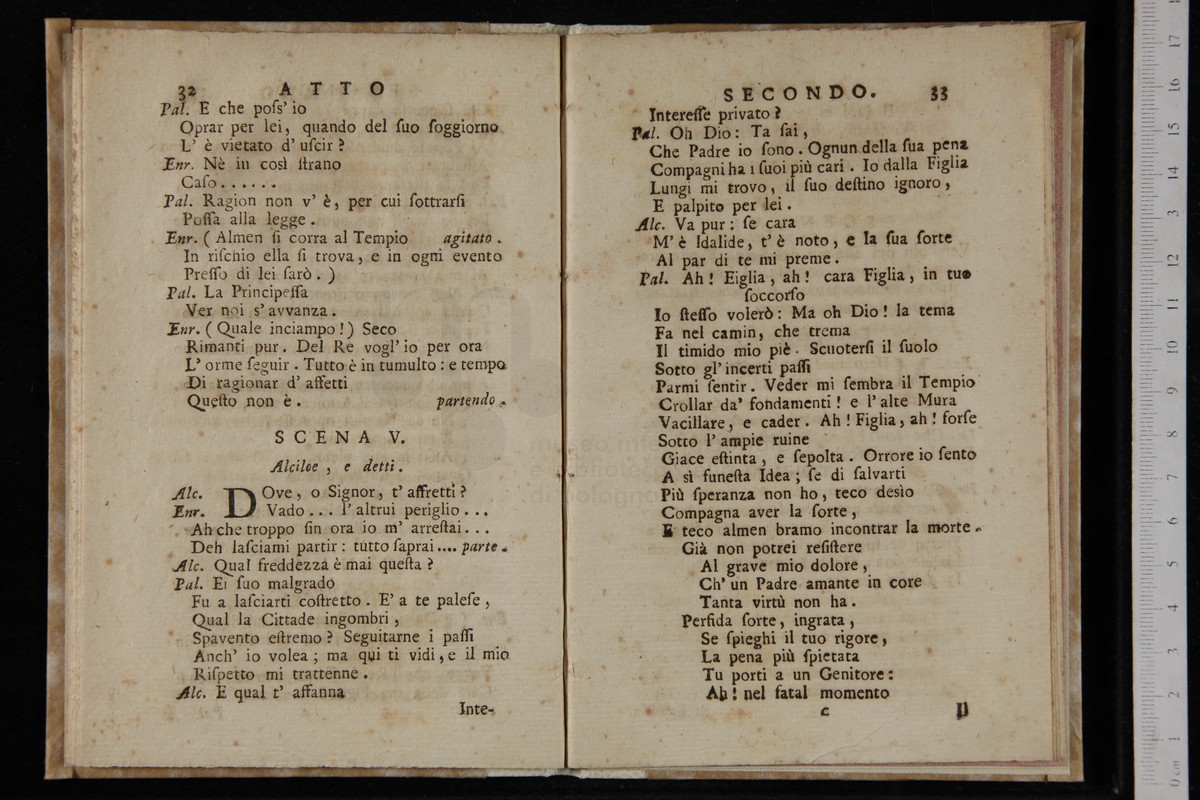 32 ATTO
Pal. E che poſs' io
Oprar per lei, quando del ſuo ſoggiorno
L' è vietato d' uſcir ?
Enr. Nè in così ſtrano
Caſo . . . . . .
Pal. Ragion non v' è, per cui ſottrarſi
Poſſa alla legge .
Enr. ( Almen ſi corra al Tempio agitato .
In riſchio ella ſi trova, e in ogni evento
Preſſo di lei ſarò . )
Pal. La Principeſſa
Ver noi s' avvanza .
Enr. ( Quale inciampo ! ) Seco
Rimanti pur . Del Re vogl' io per ora
L' orme ſeguir . Tutto è in tumulto : e tempo
Di ragionar d' affetti
Queſto non è . partendo .
SCENA V.
Alciloe , e detti .
Alc. DOve, o Signor, t' affretti ?
Enr. Vado . . . l' altrui periglio . . .
Ah che troppo ſin ora io m' arreſtai . . .
Deh laſciami partir : tutto ſaprai .... parte .
Alc. Qual freddezza è mai queſta ?
Pal. Ei ſuo malgrado
Fu a laſciarti coſtretto . E' a te paleſe ,
Qual la Cittade ingombri ,
Spavento eſtremo ? Seguitarne i paſſi
Anch' io volea ; ma qui ti vidi , e il mio
Riſpetto mi trattenne .
Alc. E qual t' affanna
Inte-
SECONDO. 33
Intereſſe privato ?
Pal. Oh Dio : Ta ſai ,
Che Padre io ſono . Ognun della ſua pena
Compagni ha i ſuoi più cari . Io dalla Figlia
Lungi mi trovo , il ſuo deſtino ignoro ,
E palpito per lei .
Alc. Va pur : ſe cara
M' è Idalide, t' è noto, e la ſua ſorte
Al par di te mi preme .
Pal. Ah ! Eiglia , ah ! cara Figlia , in tuo
ſoccorſo
Io ſteſſo volerò : Ma oh Dio ! la tema
Fa nel camin, che trema
Il timido mio piè . Scuoterſi il ſuolo
Sotto gl' incerti paſſi
Parmi ſentir . Veder mi ſembra il Tempio
Crollar da' fondamenti ! e l' alte Mura
Vacillare, e cader . Ah ! Figlia , ah ! forſe
Sotto l' ampie ruine
Giace eſtinta , e ſepolta . Orrore io ſento
A sì funeſta Idea ; ſe di ſalvarti
Più ſperanza non ho, teco desìo
Compagna aver la ſorte ,
E teco almen bramo incontrar la morte .
Già non potrei reſiſtere
Al grave mio dolore ,
Ch' un Padre amante in core
Tanta virtù non ha .
Perfida ſorte , ingrata ,
Se ſpieghi il tuo rigore ,
La pena più ſpietata
Tu porti a un Genitore :
Ah ! nel fatal momento
c Il